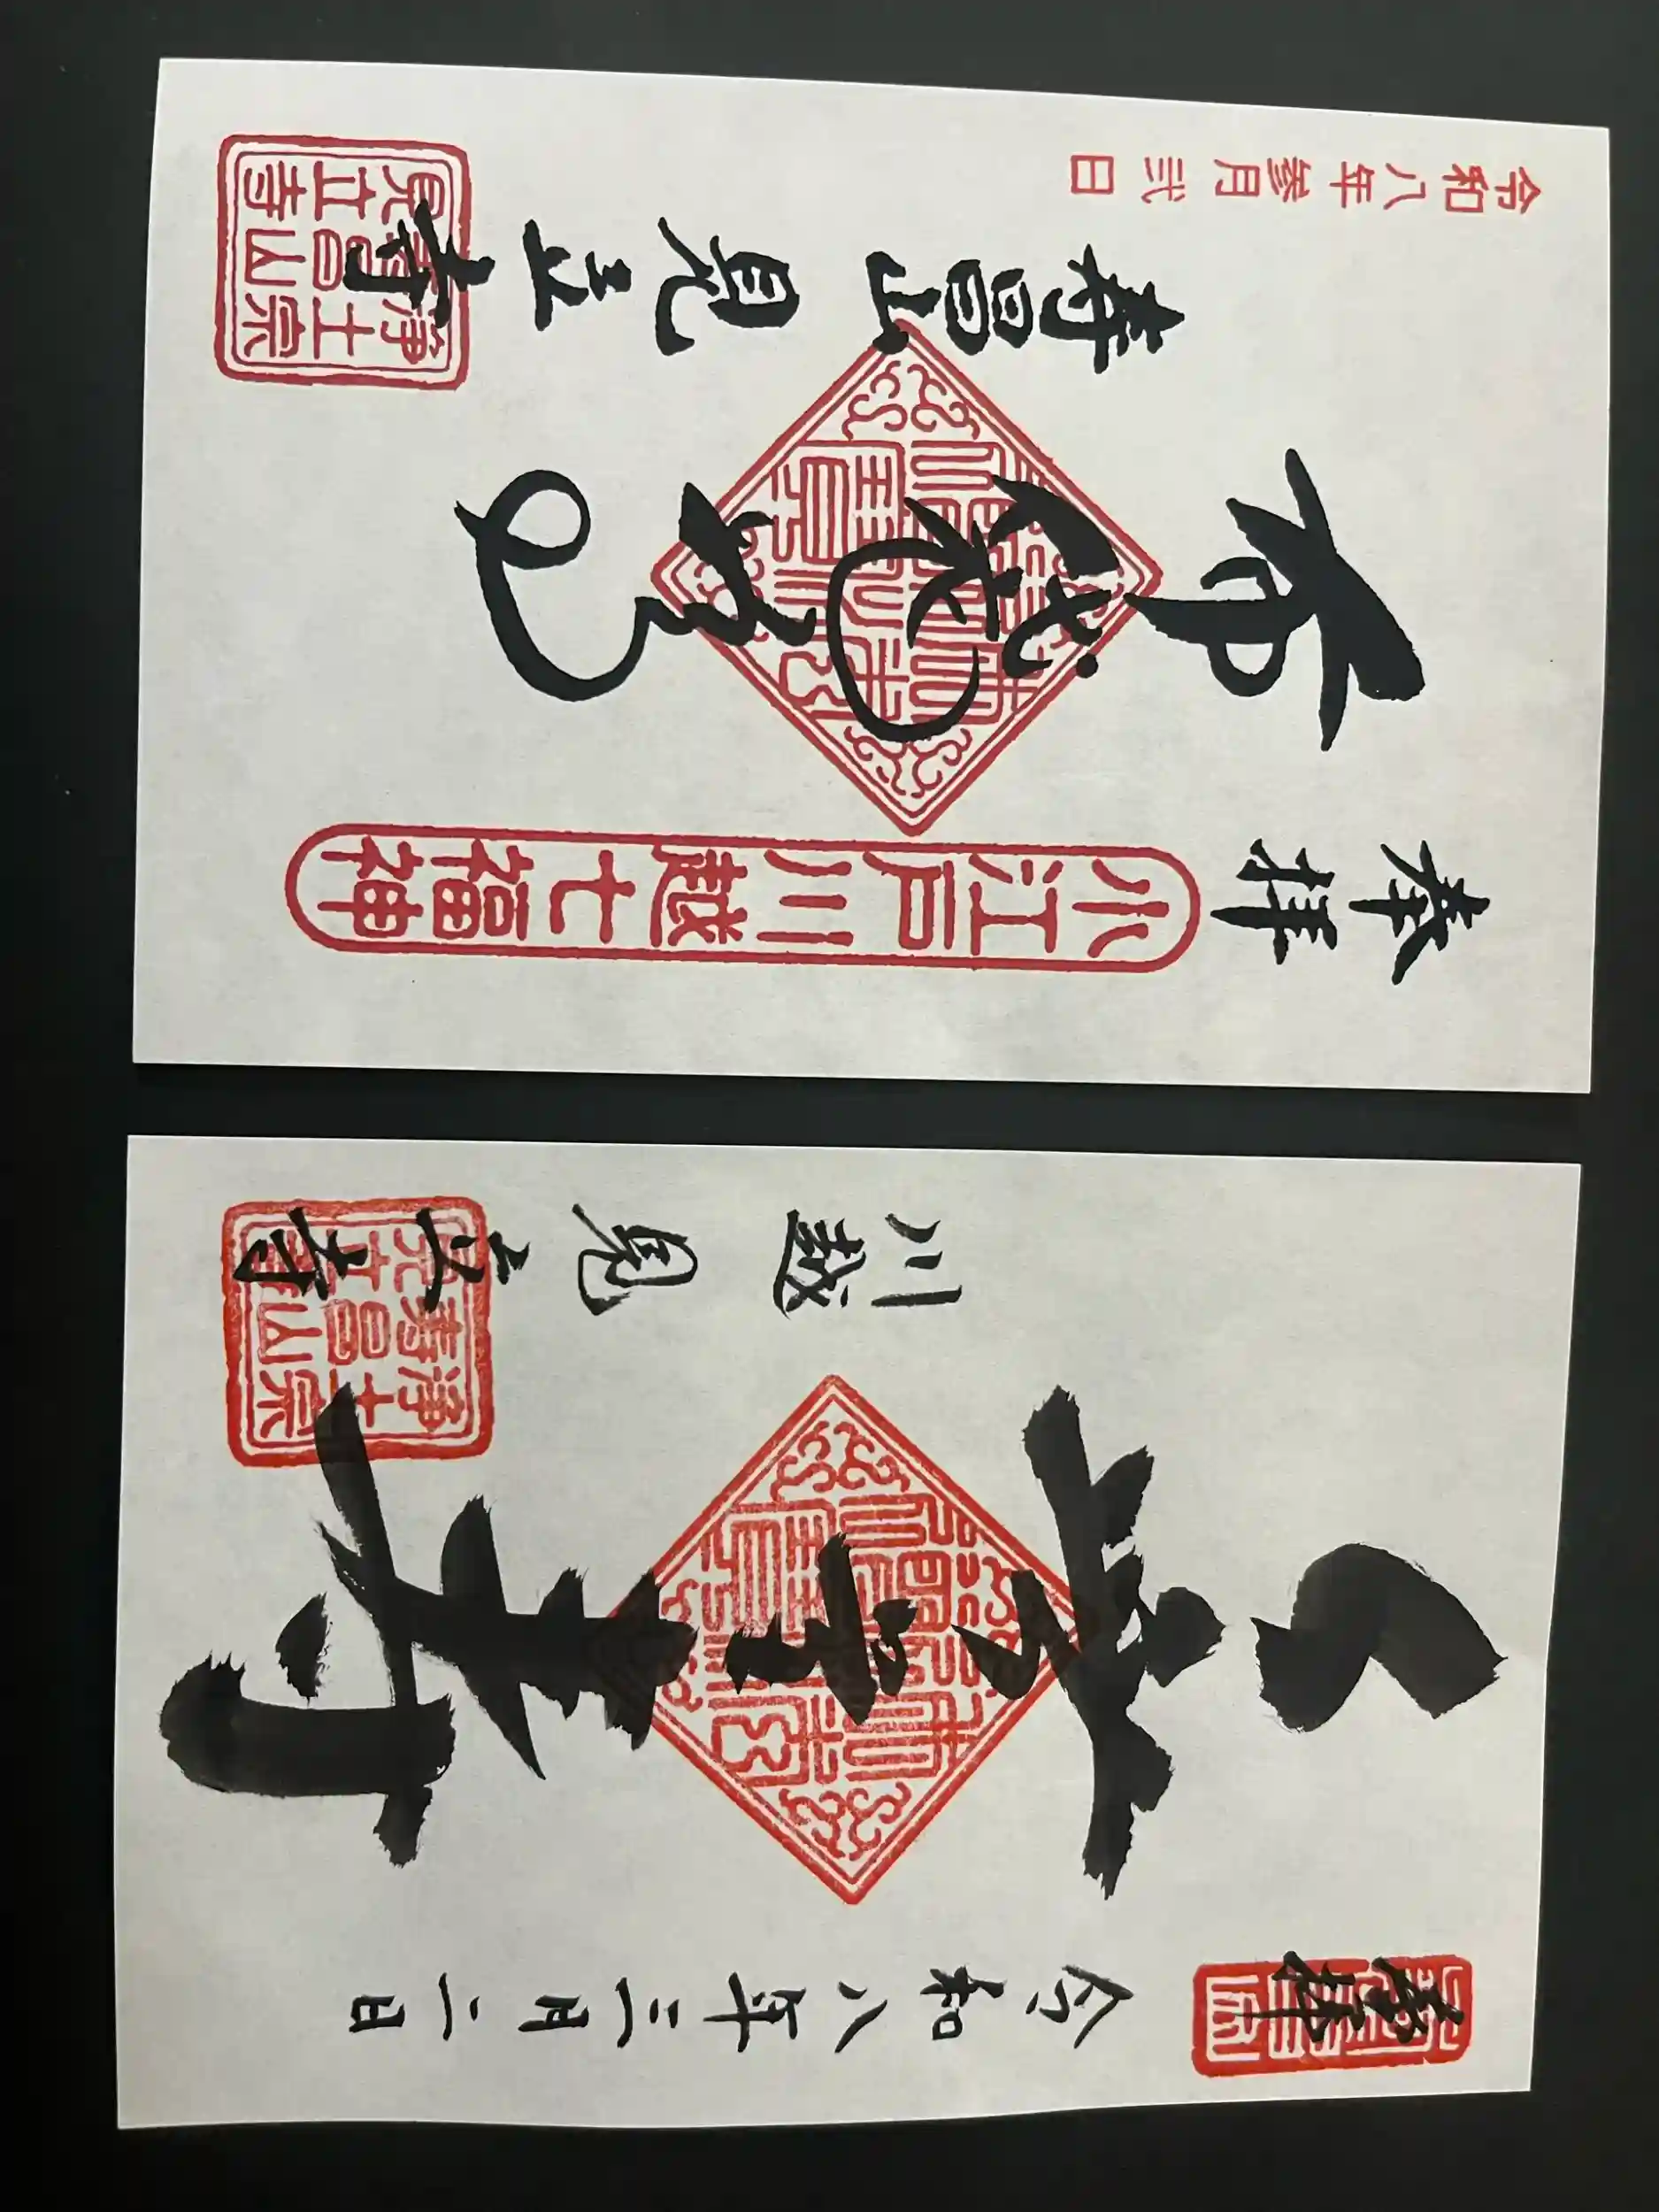 奉拝
令和八年三月二日
川越 見立寺
浄土宗
寿昌山
見立寺
奉拝
小江戸川越七福神
布袋尊
寿昌山 見立寺
浄土宗
寿昌山
見立寺
令和八年参月弐日